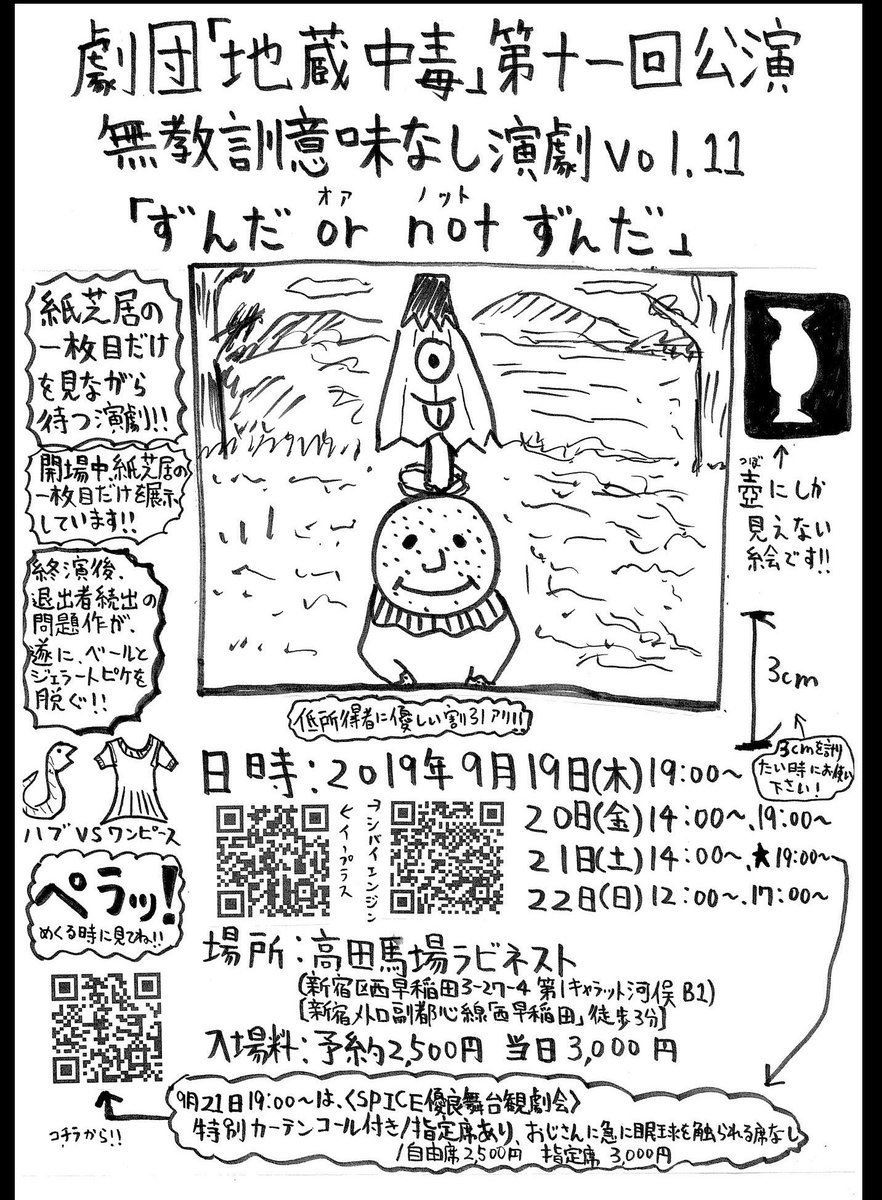 劇団「地蔵中毒」第十一回公演
無教訓意味なし演劇vol.11
オア ノット
「ずんだ or not ずんだ」
紙芝居の
一枚目だけ
を見ながら
待つ演劇!!
開場中、紙芝居の
一枚目だけを展示
しています!!
終演後、
退出者続出の
問題作が、
遂に、ベールと
ジェラートピケを
脱ぐ!!
ハブVSワンピース
ペラッ!
めくる時に見てね!!
つぼ
↑
壺にしか
見えない
絵です!!
3cm
3cmを計り
たい時にお使い
下さい!
低所得者に優しい割引アリ!!
日時:2019年9月19日(木)19:00〜
20日(金)14:00〜、19:00〜
21日(土)14:00〜、★19:00〜
22日(日)12:00〜、17:00〜
イープラス
シバイエンジン
場所:高田馬場ラビネスト
(新宿区西早稲田3-27-4 第1キャラット河俣 B1)
[新宿メトロ副都心線「西早稲田」徒歩3分]
入場料:予約2,500円 当日3,000円
9月21日19:00〜は、〈SPICE優良舞台観劇会〉
特別カーテンコール付き/指定席あり、おじさんに急に眼球を触られる席なし
/自由席2,500円 指定席 3,000円
コチラから!!